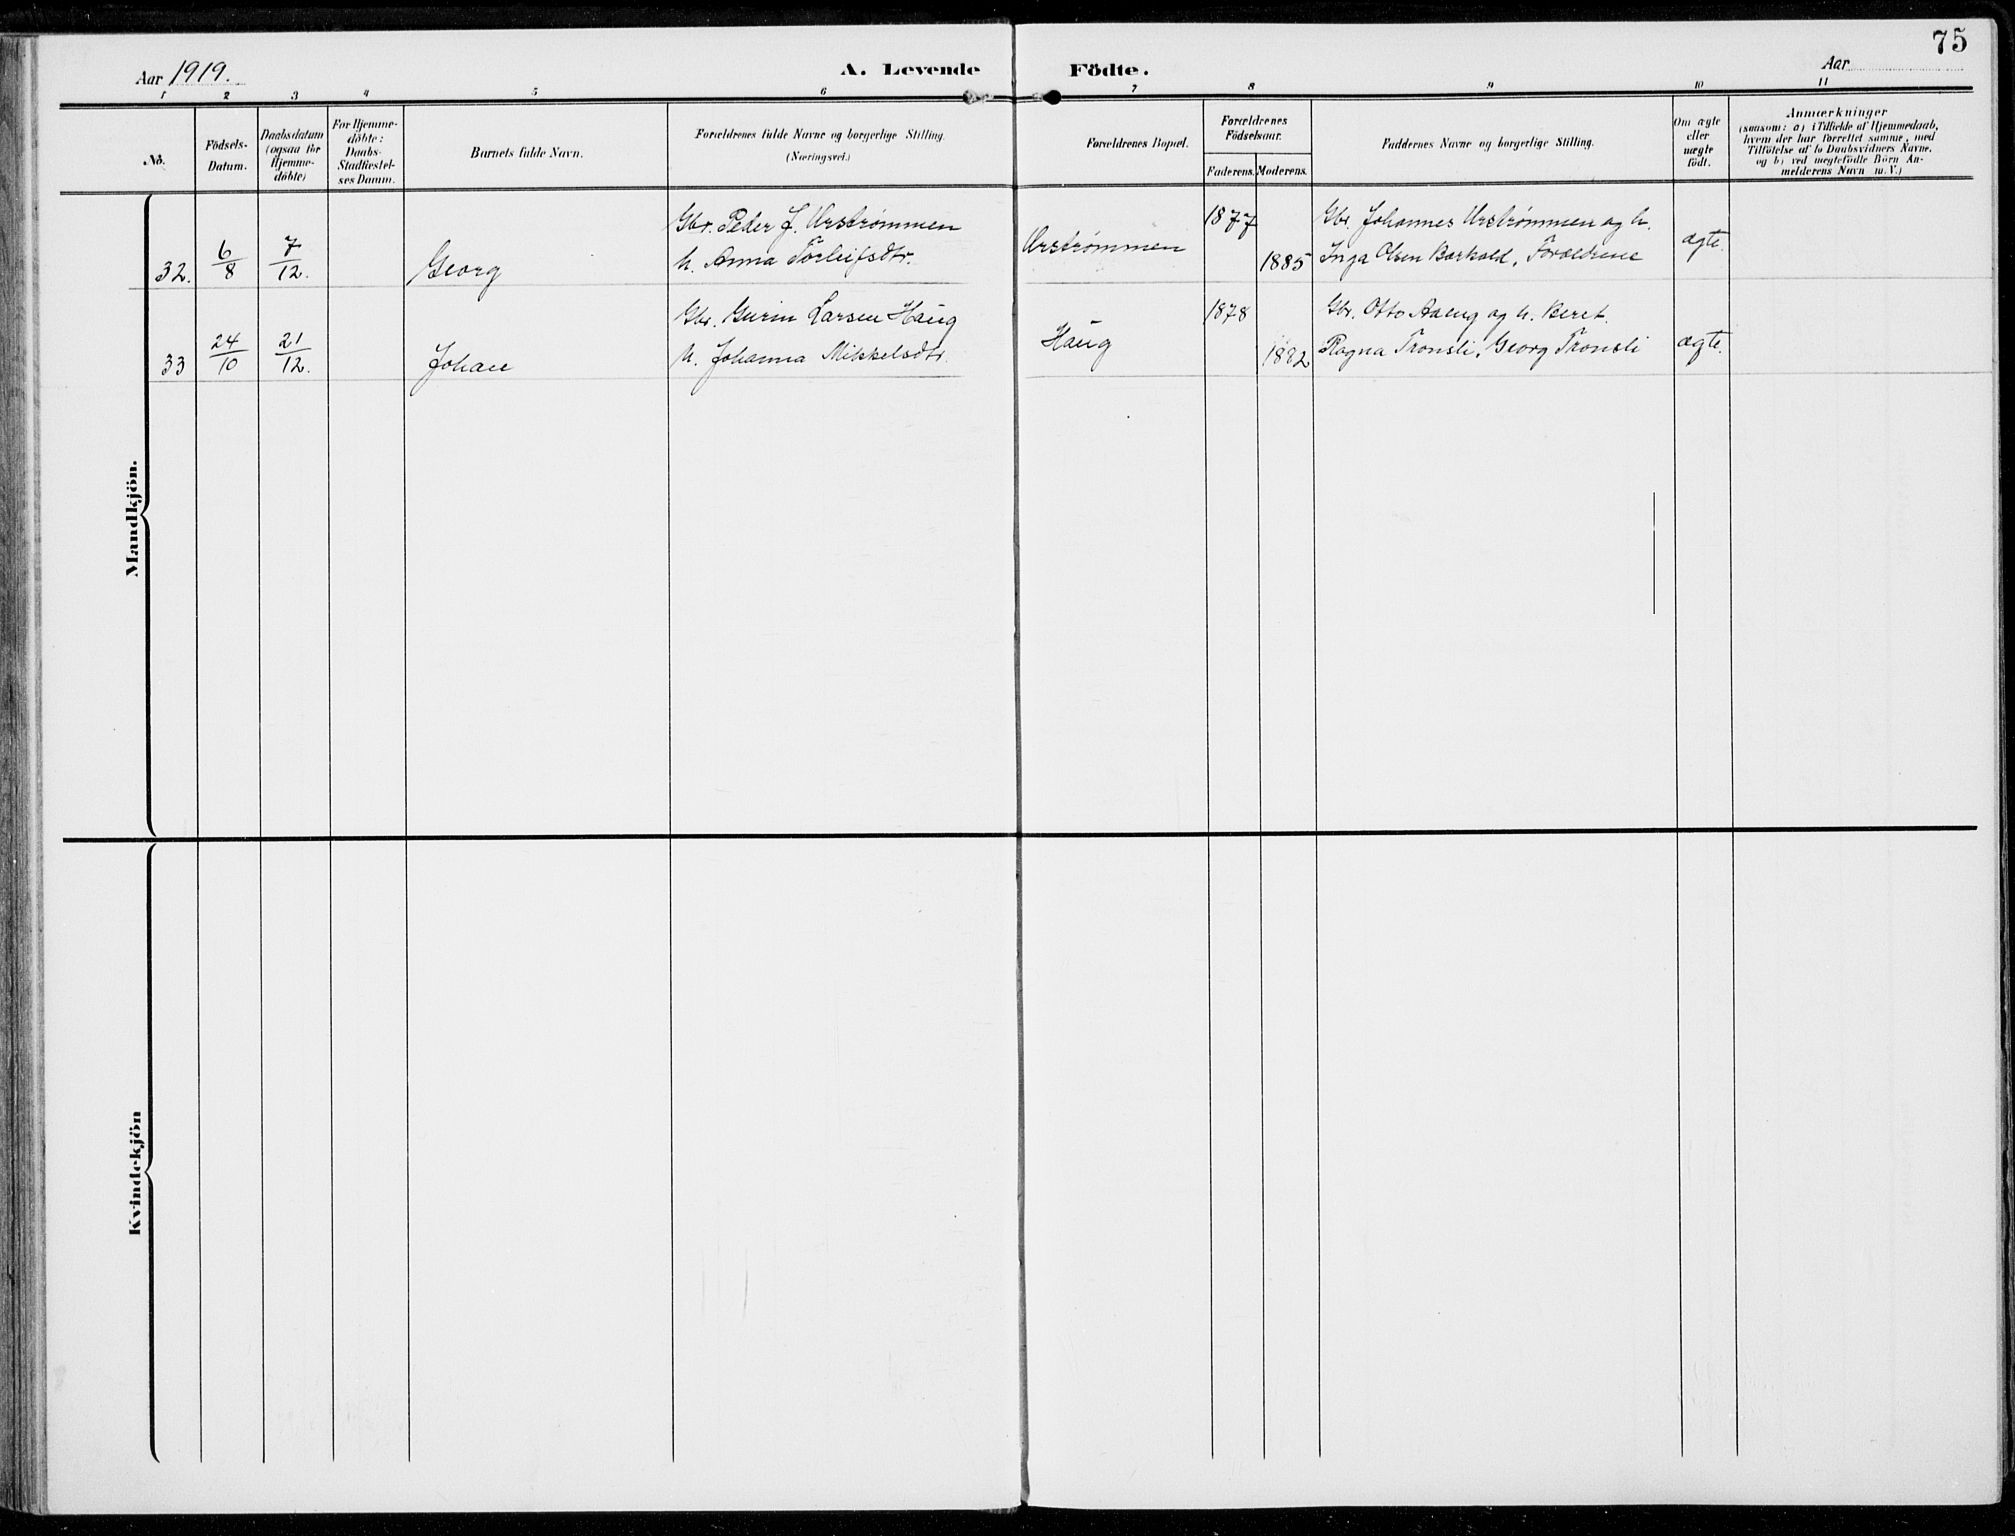 75
Aar 1919.
A. Levende Födte.
Aar
1 2 3 4 5 6 7 8 9 10 11
No.
Födsels-
Datum.
Daabsdatum
(ogsaa for
Hjemme-
döbte)
For Hjemme-
döbte:
Daabs-
Stadfæstel-
ses Datum.
Barnets fulde Navn.
Forældrenes fulde Navne og borgerlige Stilling.
(Næringsvei.)
Forældrenes Bopæl.
Forældrenes
Födselsaar.
Faderens. Moderens.
Faddernes Navne og borgerlige Stilling.
Om ægte
eller
uægte
födt.
Anmærkninger
(saasom: a) i Tilfælde af Hjemmedaab,
hvem der har forrettet samme, med
Tilföielse af to Daabsvidners Navne.
og b) ved uegtefödte Börn An-
melderens Navn m.V.)
Mandkjön.
32. 6/8 7/12. Georg
Gbr. Peder J. Urstrømmen
h. Anna Torleifsdtr.
Urstrømmen
1877
1885
Gbr. Johannes Urstrømmen og h.
Inga Olsen Barkald, Forældrene
ægte.
33 24/10 21/12. Johan
Gbr. Gurin Larsen Haug
h. Johanna Mikkelsdtr.
Haug
1878
1882
Gbr. Otto Aaeng og h. Beret.
Ragna Tronsli, Georg Tronsli
ægte.
Kvindekjön